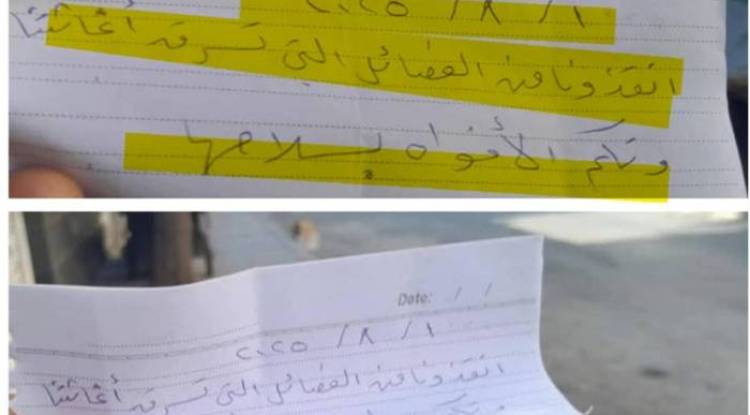 ٢٠٢٥ / ٨ / ١
انقذونا من الفصائل التي تسرق أغاثتنا
وتكم الأفواه بسلاحها
Date: / /
٢٠٢٥ / ٨ / ١
انقذونا من الفصائل التي تسرق أغاثتنا